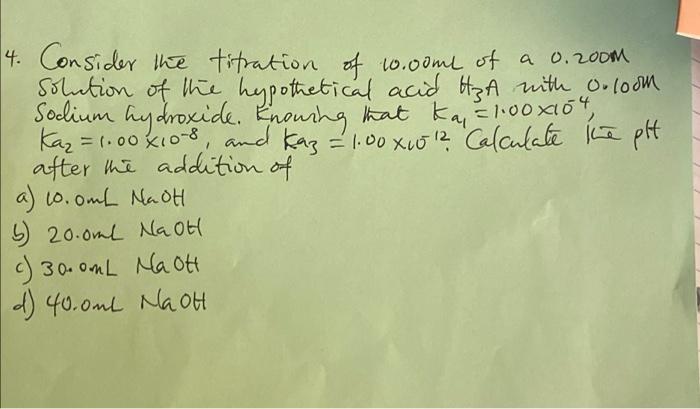 4. Consider the titration of 10.00mL of a 0.200M
Solution of the hypothetical acid H3A with 0.100M
Sodium hydroxide. Knowing that Ka1 = 1.00 x10-4,
Ka2 = 1.00 x10-8, and Ka3 = 1.00 x10-12. Calculate the pH
after the addition of
a) 10.0mL NaOH
b) 20.0mL NaOH
c) 30.0mL NaOH
d) 40.0mL NaOH